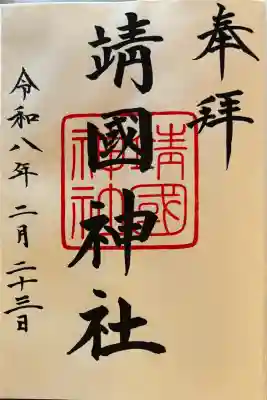 奉拝
靖國神社
靖國神社
令和八年 二月 二十三日